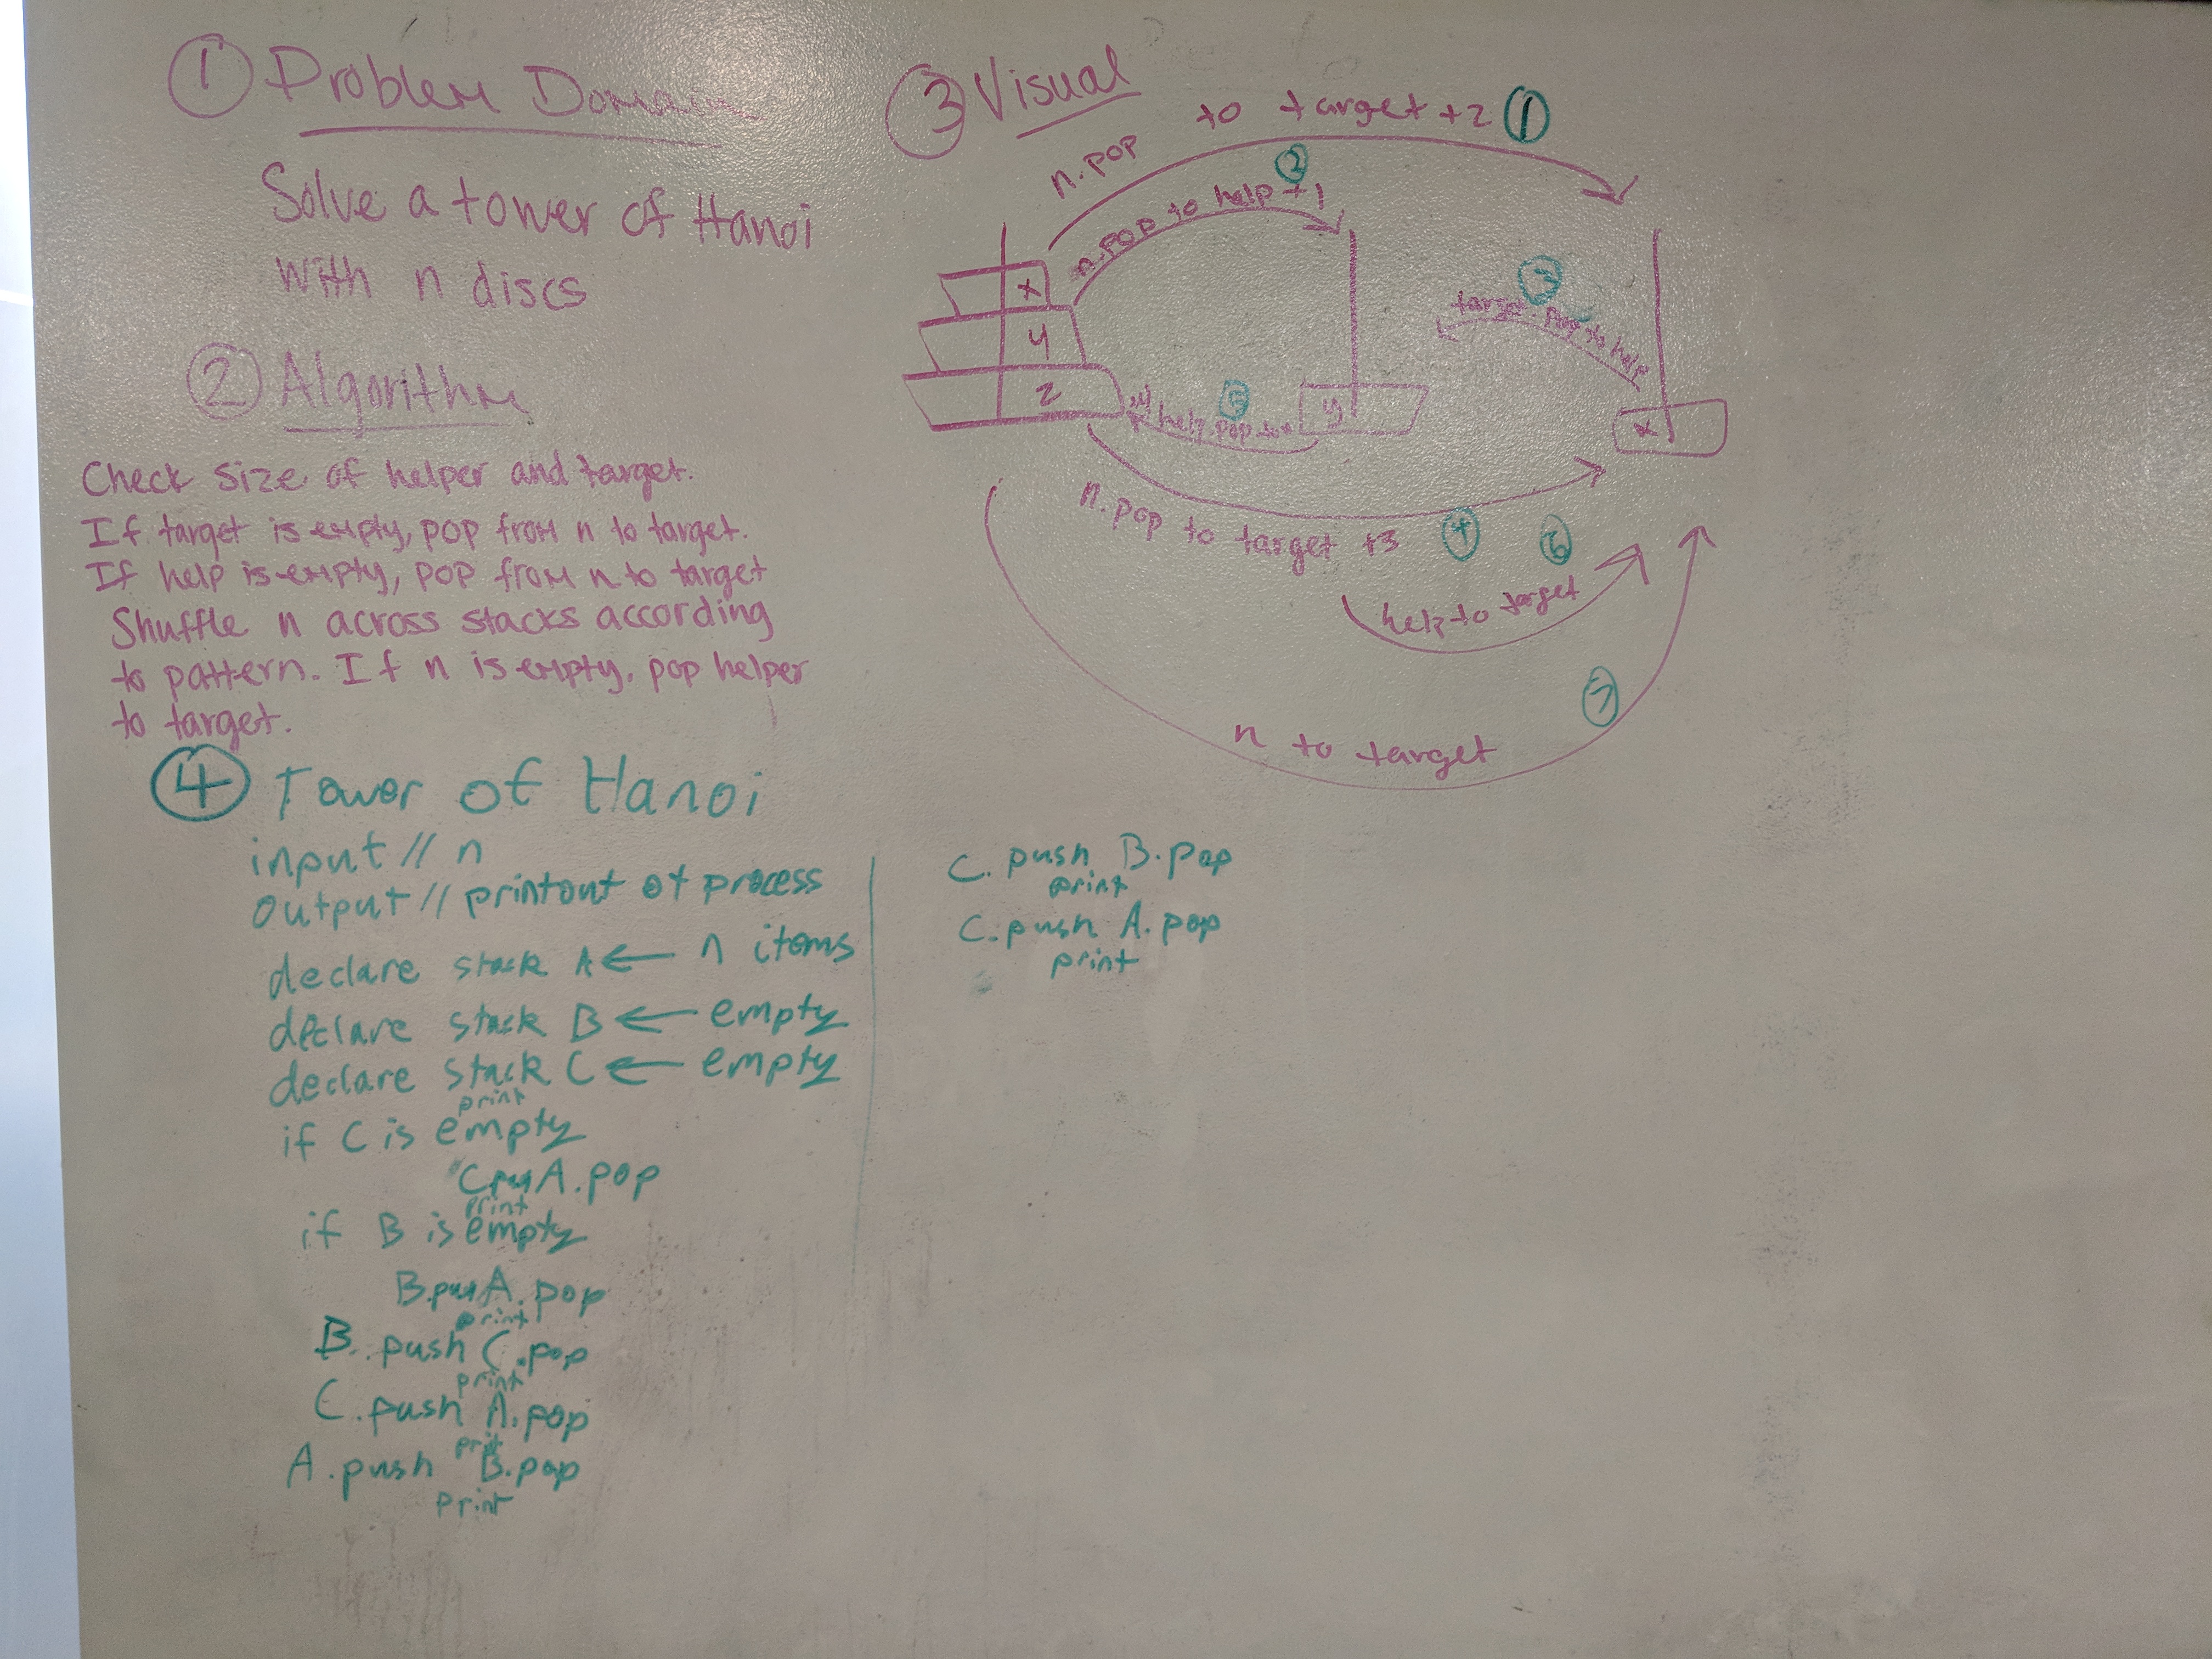 ① Problem Domain
Solve a tower of Hanoi
with n discs
② Algorithm
Check size of helper and target.
If target is empty, pop from n to target.
If help is empty, pop from n to target
Shuffle n across stacks according
to pattern. If n is empty, pop helper
to target.
③ Visual
n.pop to target +2 ①
②
n.pop to help +1
x
y
z
③
target.pop to help
⑤
help.pop to
y
x
n.pop to target +3 ④
⑥
help to target
⑦
n to target
④ Tower of Hanoi
input // n
output // printout of process
declare stack A ← n items
declare stack B ← empty
declare stack C ← empty
print
if C is empty
C A.pop
print
if B is empty
B. A.pop
print
B. push C.pop
print
C. push A.pop
print
A. push B.pop
print
C. push B.pop
print
C. push A.pop
print